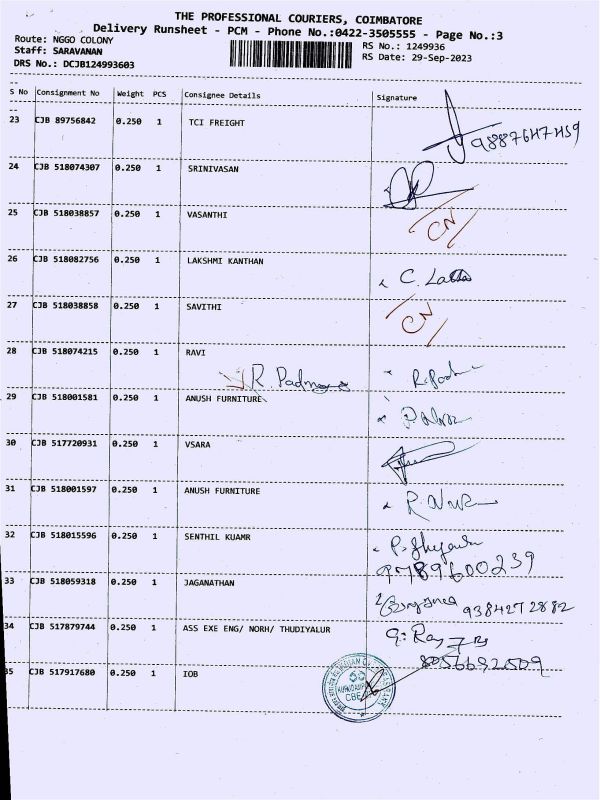 THE PROFESSIONAL COURIERS, COIMBATORE
Delivery Runsheet - PCM - Phone No.:0422-3505555 - Page No.:3
Route: NGGO COLONY
Staff: SARAVANAN
DRS No.: DCJB124993603
RS No.: 1249936
RS Date: 29-Sep-2023
S No Consignment No Weight PCS Consignee Details Signature
23 CJB 89756842 0.250 1 TCI FREIGHT
24 CJB 518074307 0.250 1 SRINIVASAN
25 CJB 518038857 0.250 1 VASANTHI CN
26 CJB 518082756 0.250 1 LAKSHMI KANTHAN C.
27 CJB 518038858 0.250 1 SAVITHI CN
28 CJB 518074215 0.250 1 RAVI
R.
29 CJB 518001581 0.250 1 ANUSH FURNITURE
30 CJB 517720931 0.250 1 VSARA
31 CJB 518001597 0.250 1 ANUSH FURNITURE R.
32 CJB 518015596 0.250 1 SENTHIL KUAMR
9789600239
33 CJB 518059318 0.250 1 JAGANATHAN
9384272882
34 CJB 517879744 0.250 1 ASS EXE ENG/ NORH/ THUDIYALUR
8056692509
35 CJB 517917680 0.250 1 IOB